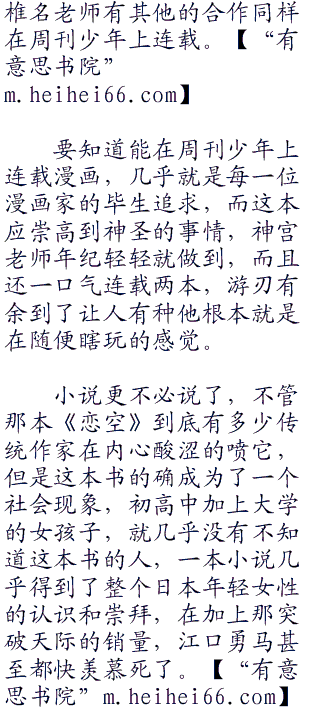 椎名老师有其他的合作同样
在周刊少年上连载。【“有
意思书院”
m.heihei66.com】
要知道能在周刊少年上
连载漫画，几乎就是每一位
漫画家的毕生追求，而这本
应崇高到神圣的事情，神宫
老师年纪轻轻就做到，而且
还一口气连载两本，游刃有
余到了让人有种他根本就是
在随便瞎玩的感觉。
小说更不必说了，不管
那本《恋空》到底有多少传
统作家在内心酸涩的喷它，
但是这本书的确成为了一个
社会现象，初高中加上大学
的女孩子，就几乎没有不知
道这本书的人，一本小说几
乎得到了整个日本年轻女性
的认识和崇拜，在加上那突
破天际的销量，江口勇马甚
至都快羡慕死了。【“有意
思书院”m.heihei66.com】